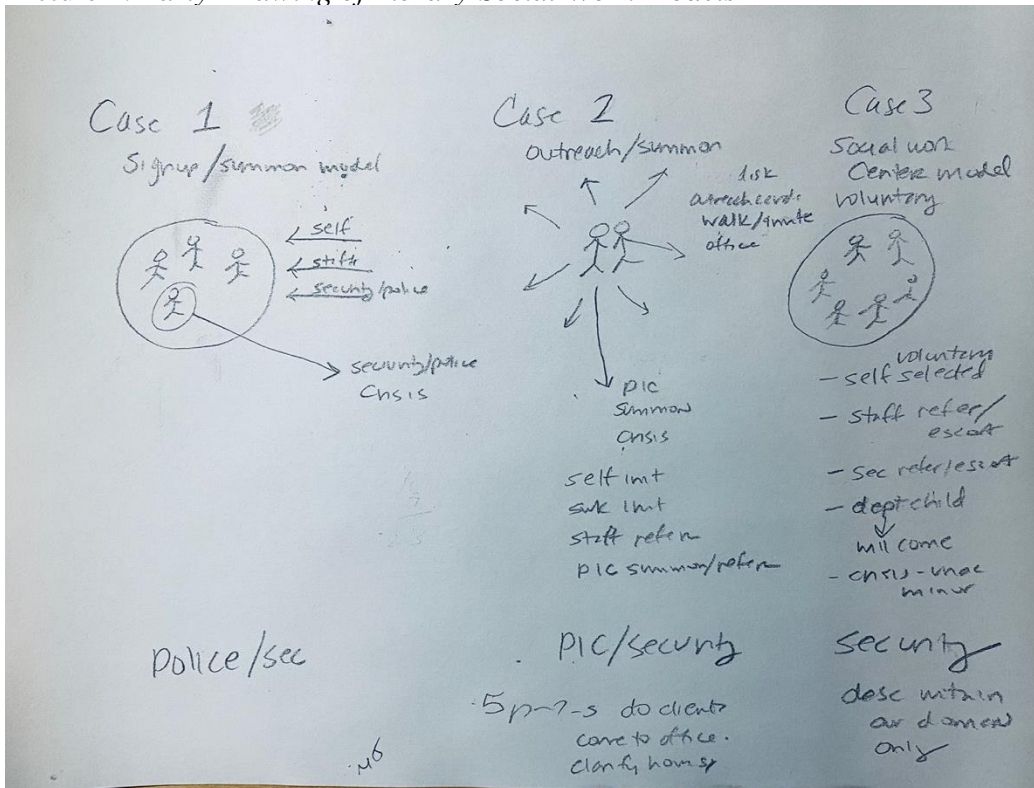 Case 1
Signup/summon model
self
staff
security/police
security/police
Crisis
Police/sec
Case 2
outreach/summon
outreach
walk/
office
PIC
summon
crisis
self init
swk init
staff refer
PIC summon/refer
PIC/security
do clients
come to office.
clarify
Case 3
Social work
Center model
voluntary
voluntary
- self selected
- staff refer/
escort
- sec refer/escort
- dept child
will come
- crisis-unac
minor
security
desc within
our domain
only